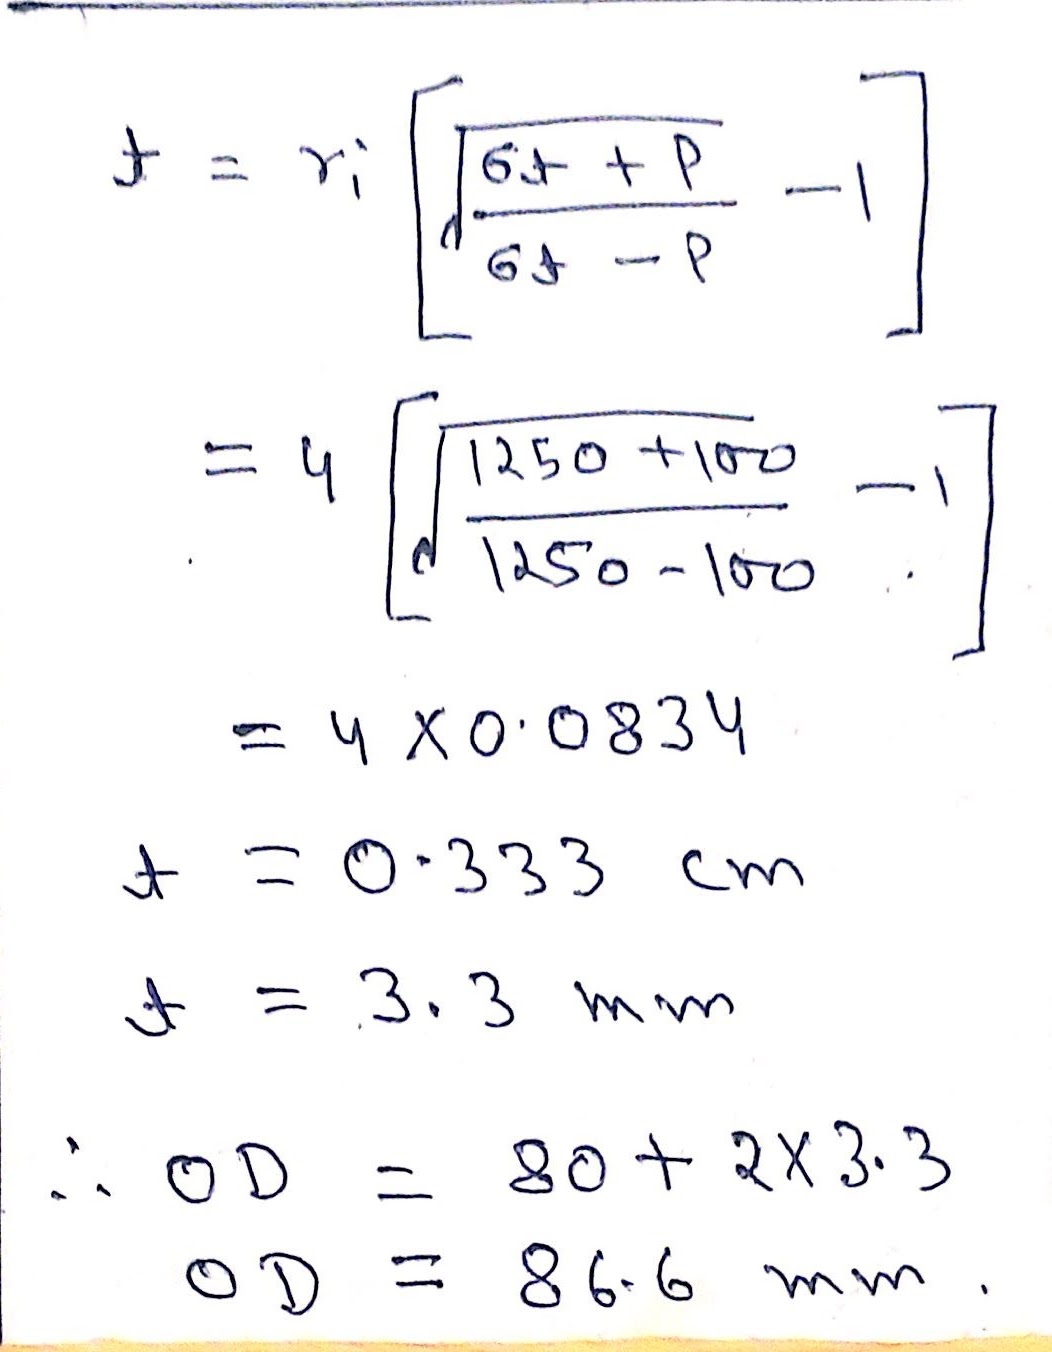 t = ri [ √ σt + P / σt - P - 1 ]
= 4 [ √ 1250 + 100 / 1250 - 100 - 1 ]
= 4 X 0.0834
t = 0.333 cm
t = 3.3 mm
∴ OD = 80 + 2 X 3.3
OD = 86.6 mm .